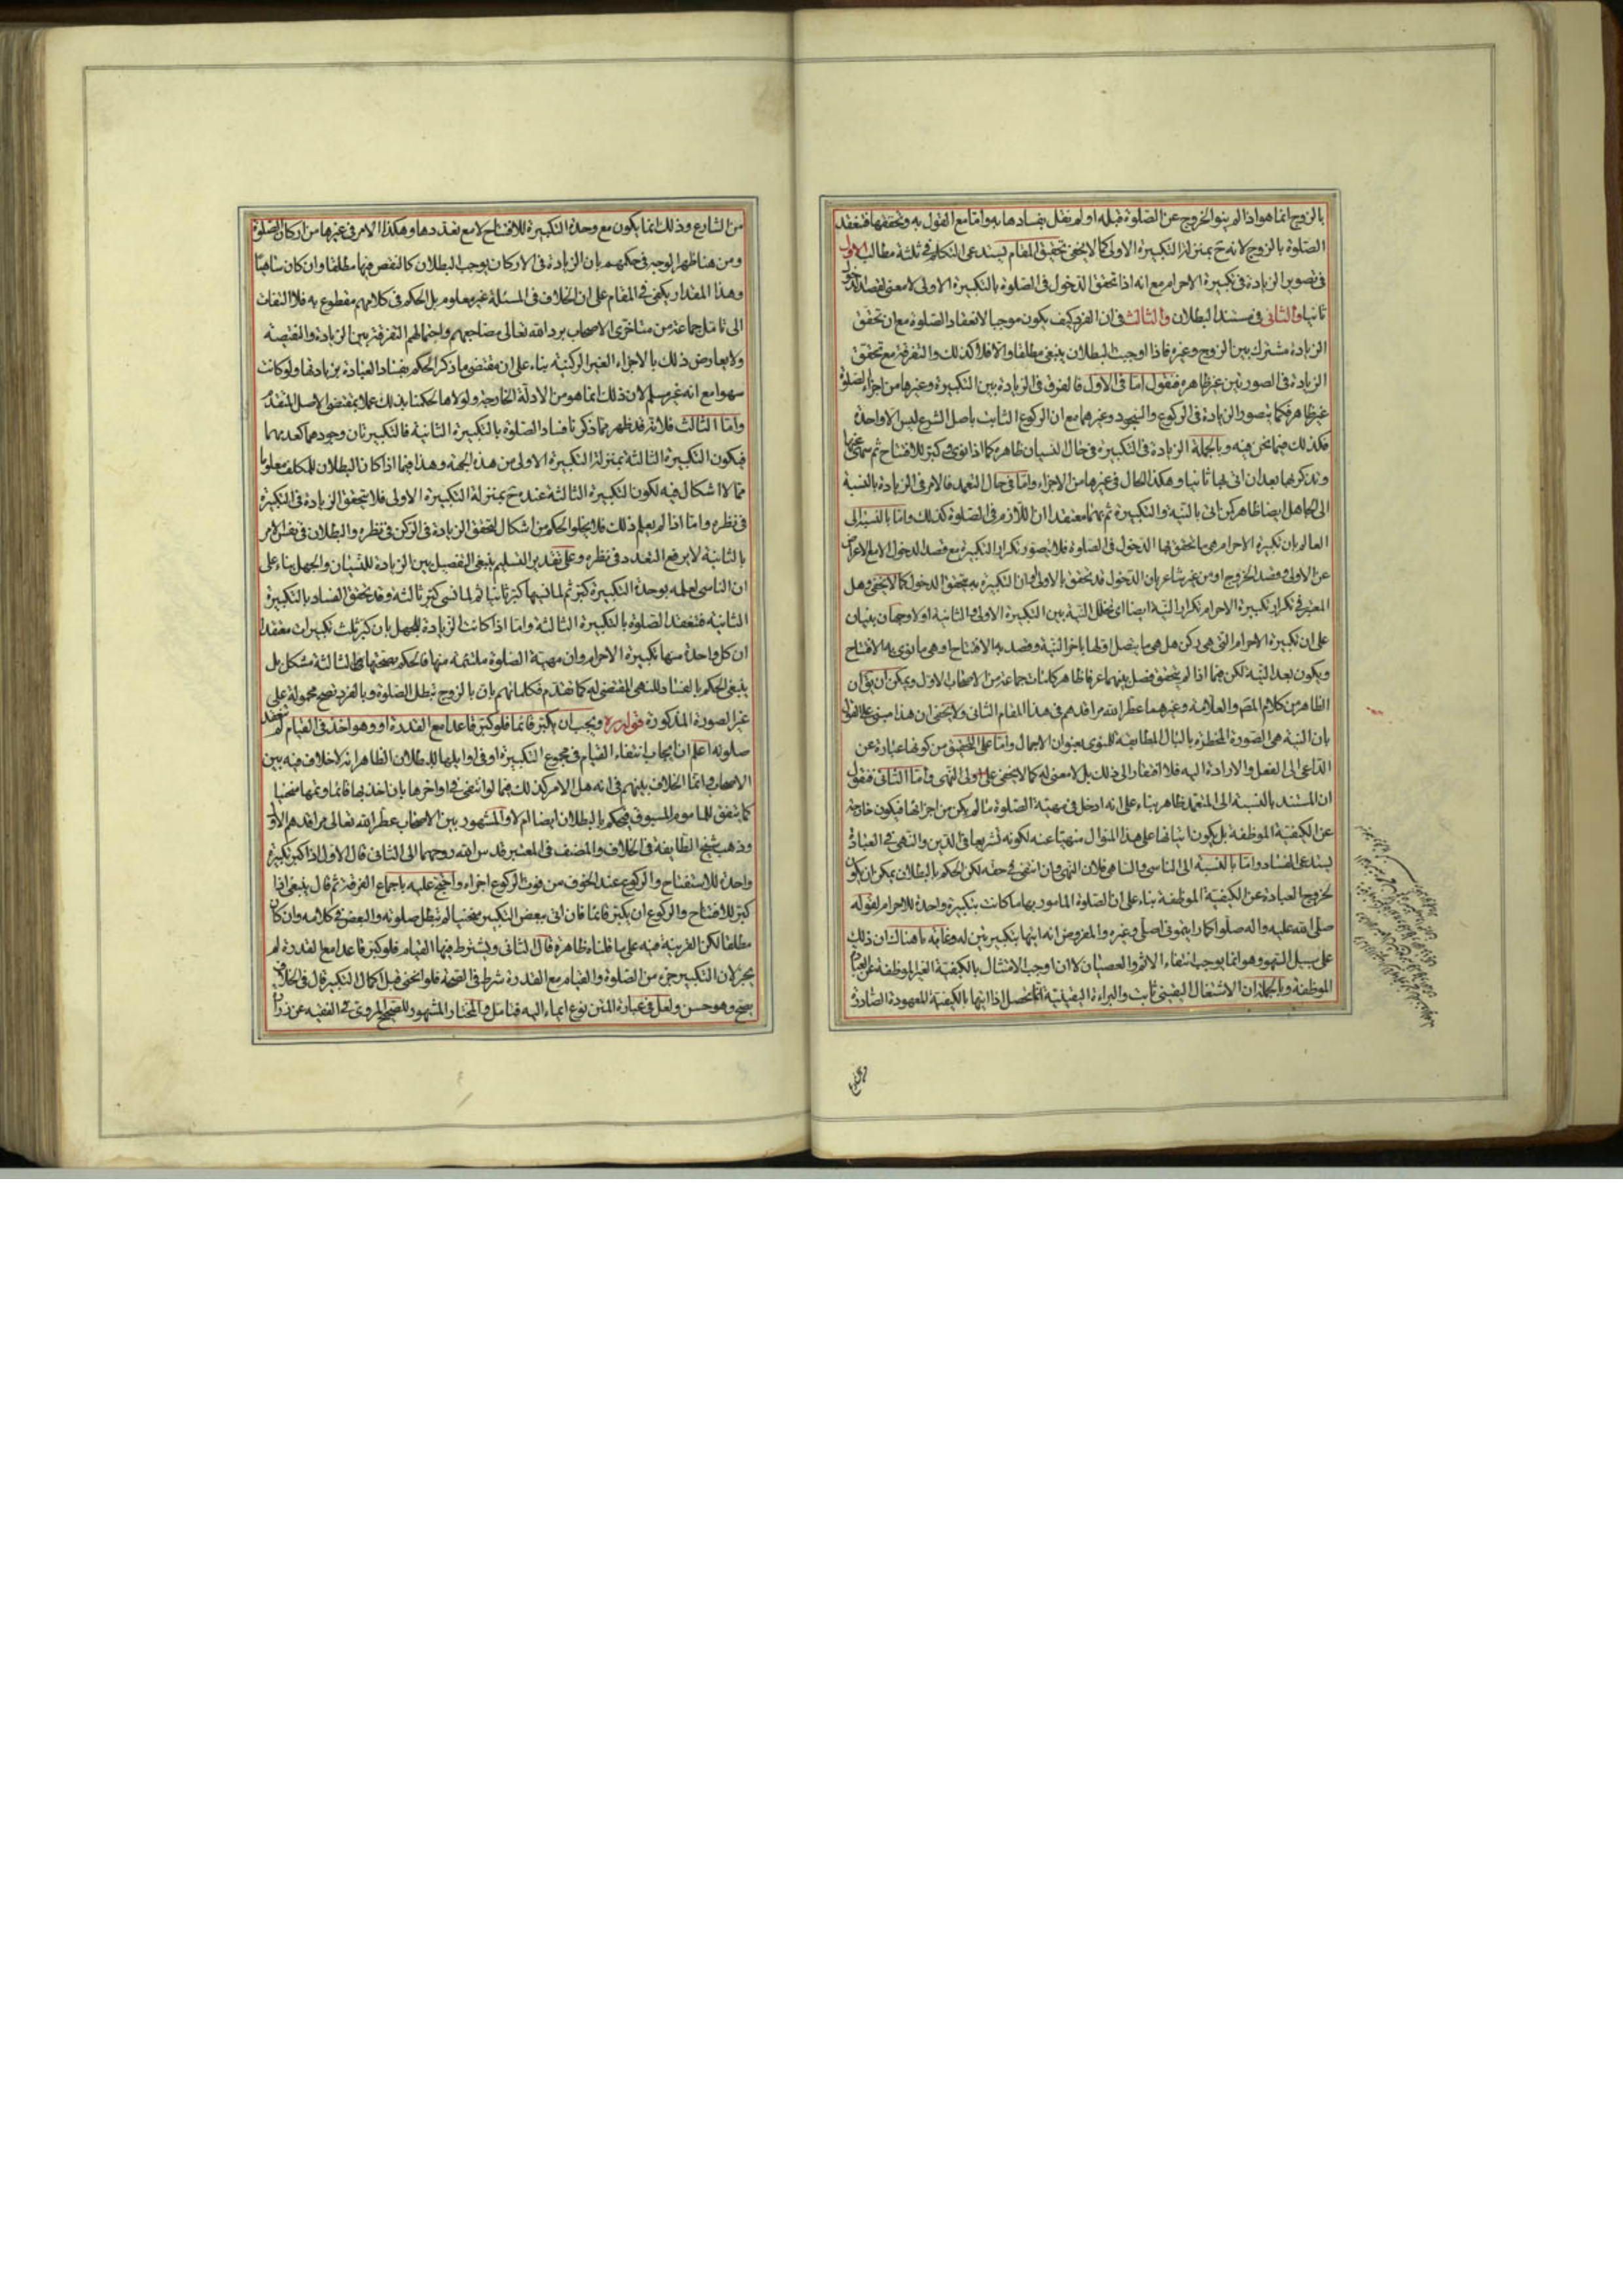 بالزوج انما هو اذا لم ينو الخروج عن الصلوة قبله او لم نقل بفسادها به واما مع القول به وتحققها فتنعقد
الصلوة بالزوج لانه ح بمنزلة التكبيرة الاولى كما لا يخفى تحقيق المقام يستدعى التكلم فى ثلثة مطالب الاول
فى تصوير الزيادة فى تكبيرة الاحرام مع انه اذا تحقق الدخول فى الصلوة بالتكبيرة الاولى لا معنى لقصد الدخول
ثانيا والثانى فى مستند البطلان والثالث فى ان الفرد كيف يكون موجبا لانعقاد الصلوة مع ان تحقق
الزيادة مشترك بين الزوج وغيره فاذا اوجبت البطلان ينبغى مطلقا والا فلا كذلك والتفرقة مع تحقق
الزيادة فى الصورتين غير ظاهرة فنقول اما فى الاول فالفرق فى الزيادة بين التكبيرة وغيرها من اجزاء الصلوة
غير ظاهر فكما يتصور الزيادة فى الركوع والسجود وغيرهما مع ان الركوع الثابت باصل الشرع ليس الا واحدة
فكذلك فيما نحن فيه وبالجملة الزيادة فى التكبيرة فى حال النسيان ظاهرة كما اذا نوى وكبر للافتتاح ثم سهى عنها
وتذكر بها بعد ان اتى بها ثانيا وهكذا الحال فى غيرها من الاجزاء واما فى حال التعمد فالامر فى الزيادة بالنسبة
الى الجاهل ايضا ظاهر كمن اتى بالنية والتكبيرة ثم بهما معتقدا ان اللازم فى الصلوة كذلك واما بالنسبة الى
العالم بان تكبيرة الاحرام هى ما تحقق بها الدخول فى الصلوة فلا يتصور تكرار التكبيرة مع قصد الدخول الا مع الاعراض
عن الاولى وقصد الخروج او من غير شاعر بان الدخول قد تحقق بالاولى وان التكبيرة به يتحقق الدخول كما لا يخفى وهل
المعتبر فى تكرار تكبيرة الاحرام تكرار النية ايضا اى تخلل النية بين التكبيرة الاولى والثانية او لا وجهان مبنيان
على ان تكبيرة الاحرام التى هى ركن هل هى ما يتصل اولها باخر النية وقصد به الافتتاح او هى ما نوى به الافتتاح
ويكون بعد النية لكن فيما اذا لم يتحقق فصل بينهما عرفا ظاهر كلمات جماعة من الاصحاب الاول ويمكن ان يق ان
الظاهر من كلام المص والعلامة وغيرهما عطر الله مراقدهم فى هذا المقام الثانى ولا يخفى ان هذا مبنى على القول
بان النية هى الصورة المخطرة بالبال المطابقة للمنوى بعنوان الاجمال واما على التحقيق من كونها عبارة عن
الداعى الى الفعل والارادة اليه فلا افتقار الى ذلك بل لا معنى له كما لا يخفى على اولى النهى واما الثانى فنقول
ان المستند بالنسبة الى المتعمد ظاهر بناء على انه ادخل فى مهية الصلوة ما لم يكن من اجزائها فيكون خارجة
عن الكيفية الموظفة بل يكون اتيانها على هذا المنوال منهيا عنه لكونه تشريعا فى الدين والنهى فى العبادة
يستدعى الفساد واما بالنسبة الى الناسى والساهى فلان النهى وان انتفى فى حقه لكن الحكم بالبطلان يمكن ان يكون
لخروج العبادة عن الكيفية الموظفة بناء على ان الصلوة المامور بها ما كانت بتكبيرة واحدة للاحرام لقوله
صلى الله عليه واله صلوا كما رايتمونى اصلى وغيره والمفروض انه اتيها بتكبيرتين له وغاية ما هناك ان ذلك
على سبيل السهو وهو انما يوجب انتفاء الاثم والعصيان لا ان اوجب الامتثال بالكيفية الغير الموظفة عن العبادة
الموظفة وبالجملة ان الاشتغال اليقينى ثابت والبراءة اليقينية انما تحصل اذا اتيها بالكيفية المعهودة الصادرة
من الشارع وذلك انما يكون مع وحدة التكبيرة للافتتاح لا مع تعددها وهكذا الامر فى غيرها من اركان الصلوة
ومن هنا ظهر الوجه فى حكمهم بان الزيادة فى الاركان يوجب البطلان كالنقص فيها مطلقا وان كان ساهيا
وهذا المقدار يكفى فى المقام على ان الخلاف فى المسئلة غير معلوم بل الحكم فى كلامهم مقطوع به فلا التفات
الى تامل جماعة من متاخرى الاصحاب برد الله تعالى مضاجعهم واحتمالهم التفرقة بين الزيادة والنقيصة
ولا يعارض ذلك بالاجزاء الغير الركنية بناء على ان مقتضى ما ذكر الحكم بفساد العبادة بزيادتها ولو كانت
سهوا مع انه غير مسلم لان ذلك انما هو من الادلة الخارجة ولولاها لحكمنا بذلك عملا بمقتضى الاصل المتقدم
واما الثالث فلانه قد ظهر مما ذكرنا فساد الصلوة بالتكبيرة الثانية فالتكبيرتان وجودهما كعدمهما
فيكون التكبيرة الثالثة بمنزلة التكبيرة الاولى من هذه الجهة وهذا فيما اذا كان البطلان للمكلف معلوما
مما لا اشكال فيه لكون التكبيرة الثالثة عنده ح بمنزلة التكبيرة الاولى فلا تحقق الزيادة فى التكبيرة
فى نظره واما اذا لم يعلم ذلك فلا يخلو الحكم من اشكال لتحقق الزيادة فى الركن فى نظره والبطلان فى نفس الامر
بالثانية لا يرفع التعدد فى نظره وعلى تقدير التسليم ينبغى التفصيل بين الزيادة للنسيان والجهل بناء على
ان الناسى لعلمه بوحدة التكبيرة كبر ثم لما نسيها كبر ثانيا ثم لما نسى كبر ثالثة وقد تحقق الفساد بالتكبيرة
الثانية فتنعقد الصلوة بالتكبيرة الثالثة واما اذا كانت الزيادة للجهل بان كبر ثلث تكبيرات معتقدا
ان كل واحدة منها تكبيرة الاحرام وان مهية الصلوة ملتئمة منها فالحكم بصحتها بالثالثة مشكل بل
ينبغى الحكم بالفساد للنهى المقتضى له كما تقدم فكلماتهم بان بالزوج تبطل الصلوة وبالفرد تصح محمولة على
غير الصورة المذكورة قوله ره ويجب ان يكبر قائما فلو كبر قاعدا مع القدرة او وهو اخذ فى القيام لم تنعقد
صلوته اعلم ان ايجاب انتفاء القيام فى مجموع التكبيرة او فى اوايلها للبطلان الظاهر انه لا خلاف فيه بين
الاصحاب وانما الخلاف بينهم فى انه هل الامر كذلك فيما لو انتفى فى اواخرها بان اخذ بها قائما وتمها منحنيا
كما يتفق للماموم المسبوق فيحكم بالبطلان ايضا ام لا والمشهور بين الاصحاب عطر الله تعالى مراقدهم الاول
وذهب شيخ الطايفة فى الخلاف والمصنف فى المعتبر قدس الله روحهما الى الثانى قال الاول اذا كبر تكبيرة
واحدة للاستفتاح والركوع عند الخوف من فوت الركوع اجزاه واحتج عليه باجماع الفرقة ثم قال ينبغى اذا
كبر للافتتاح والركوع ان يكبر قائما فان اتى ببعض التكبير منحنيا لم تبطل صلوته والبعض فى كلامه وان كان
مطلقا لكن القرينة فيه على ما قلناه ظاهرة قال الثانى ويشترط فيها القيام فلو كبر قاعدا مع القدرة لم
يجز لان التكبير جزء من الصلوة والقيام مع القدرة شرط فى الصحة فلو انحنى قبل اكمال التكبير قال فى الخلاف
يصح وهو حسن ولعل فى عبارة المتن نوع ايماء اليه فتامل والمختار المشهور للصحيح المروى فى الفقيه عن زرارة